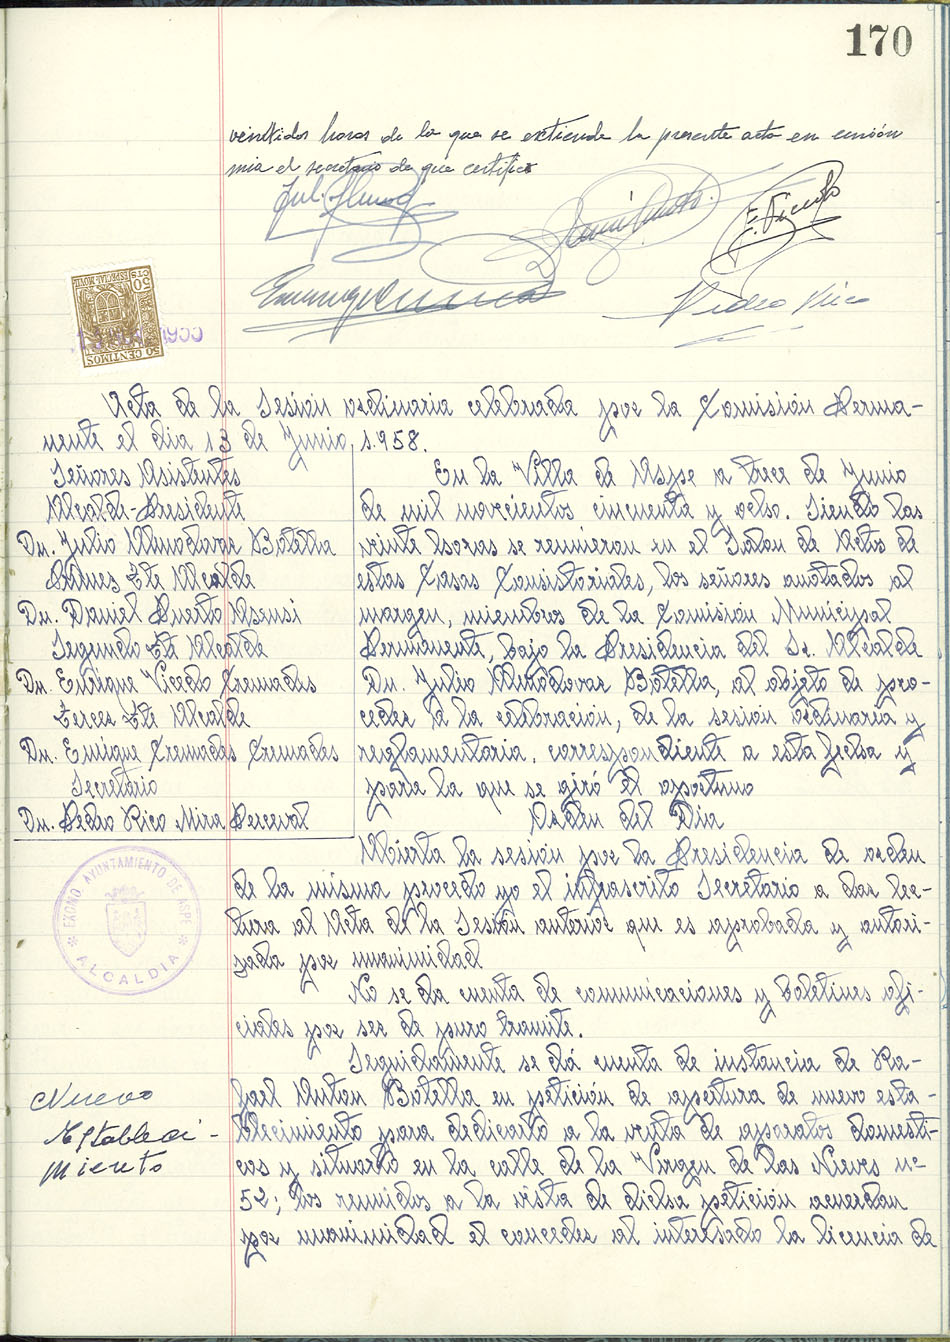 170
veintidos horas de lo que se extiende la presente acta en unión
mia el secretario de que certifico
E. Vicedo
Pedro Rico
ESPECIAL MOVIL
50 CTS
50 CENTIMOS
Acta de la Sesión ordinaria celebrada por la Comisión Perma-
nente el dia 13 de Junio, 1.958.
Señores Asistentes
Alcalde-Presidente
Dn. Julio Almodovar Botella
Primer Tte Alcalde
Dn. Daniel Puerto Asensi
Segundo Tte Alcalde
Dn. Enrique Vicedo Cremades
Tercer Tte Alcalde
Dn. Enrique Cremades Cremades
Secretario
Dn. Pedro Rico Mira Perceval
En la Villa de Aspe a trece de Junio
de mil novecientos cincuenta y ocho. Siendo las
veinte horas se reunieron en el Salon de Actos de
estas Casas Consistoriales, los señores anotados al
margen, miembros de la Comisión Municipal
Permanente, bajo la Presidencia del Sr. Alcalde
Dn. Julio Almodovar Botella, al objeto de pro-
ceder a la celebración, de la sesion ordinaria y
reglamentaria. correspondiente a esta fecha y
para la que se giró el oportuno
Orden del Dia
Abierta la sesión por la Presidencia de orden
de la misma procedo yo el infrascrito Secretario a dar lec-
tura al Acta de la Sesión anterior que es aprobada y autori-
zada por unanimidad
No se da cuenta de comunicaciones y boletines ofi-
ciales por ser de puro tramite.
EXCMO. AYUNTAMIENTO DE ASPE
* ALCALDIA *
Nuevo
Estableci-
miento
Seguidamente se dá cuenta de instancia de Ra-
fael Anton Botella en petición de apertura de nuevo esta-
blecimiento para dedicarlo a la venta de aparatos domesti-
cos y situarlo en la calle de la Virgen de las Nieves nº
52; los reunidos a la vista de dicha petición acuerdan
por unanimidad el conceder al interesado la licencia de